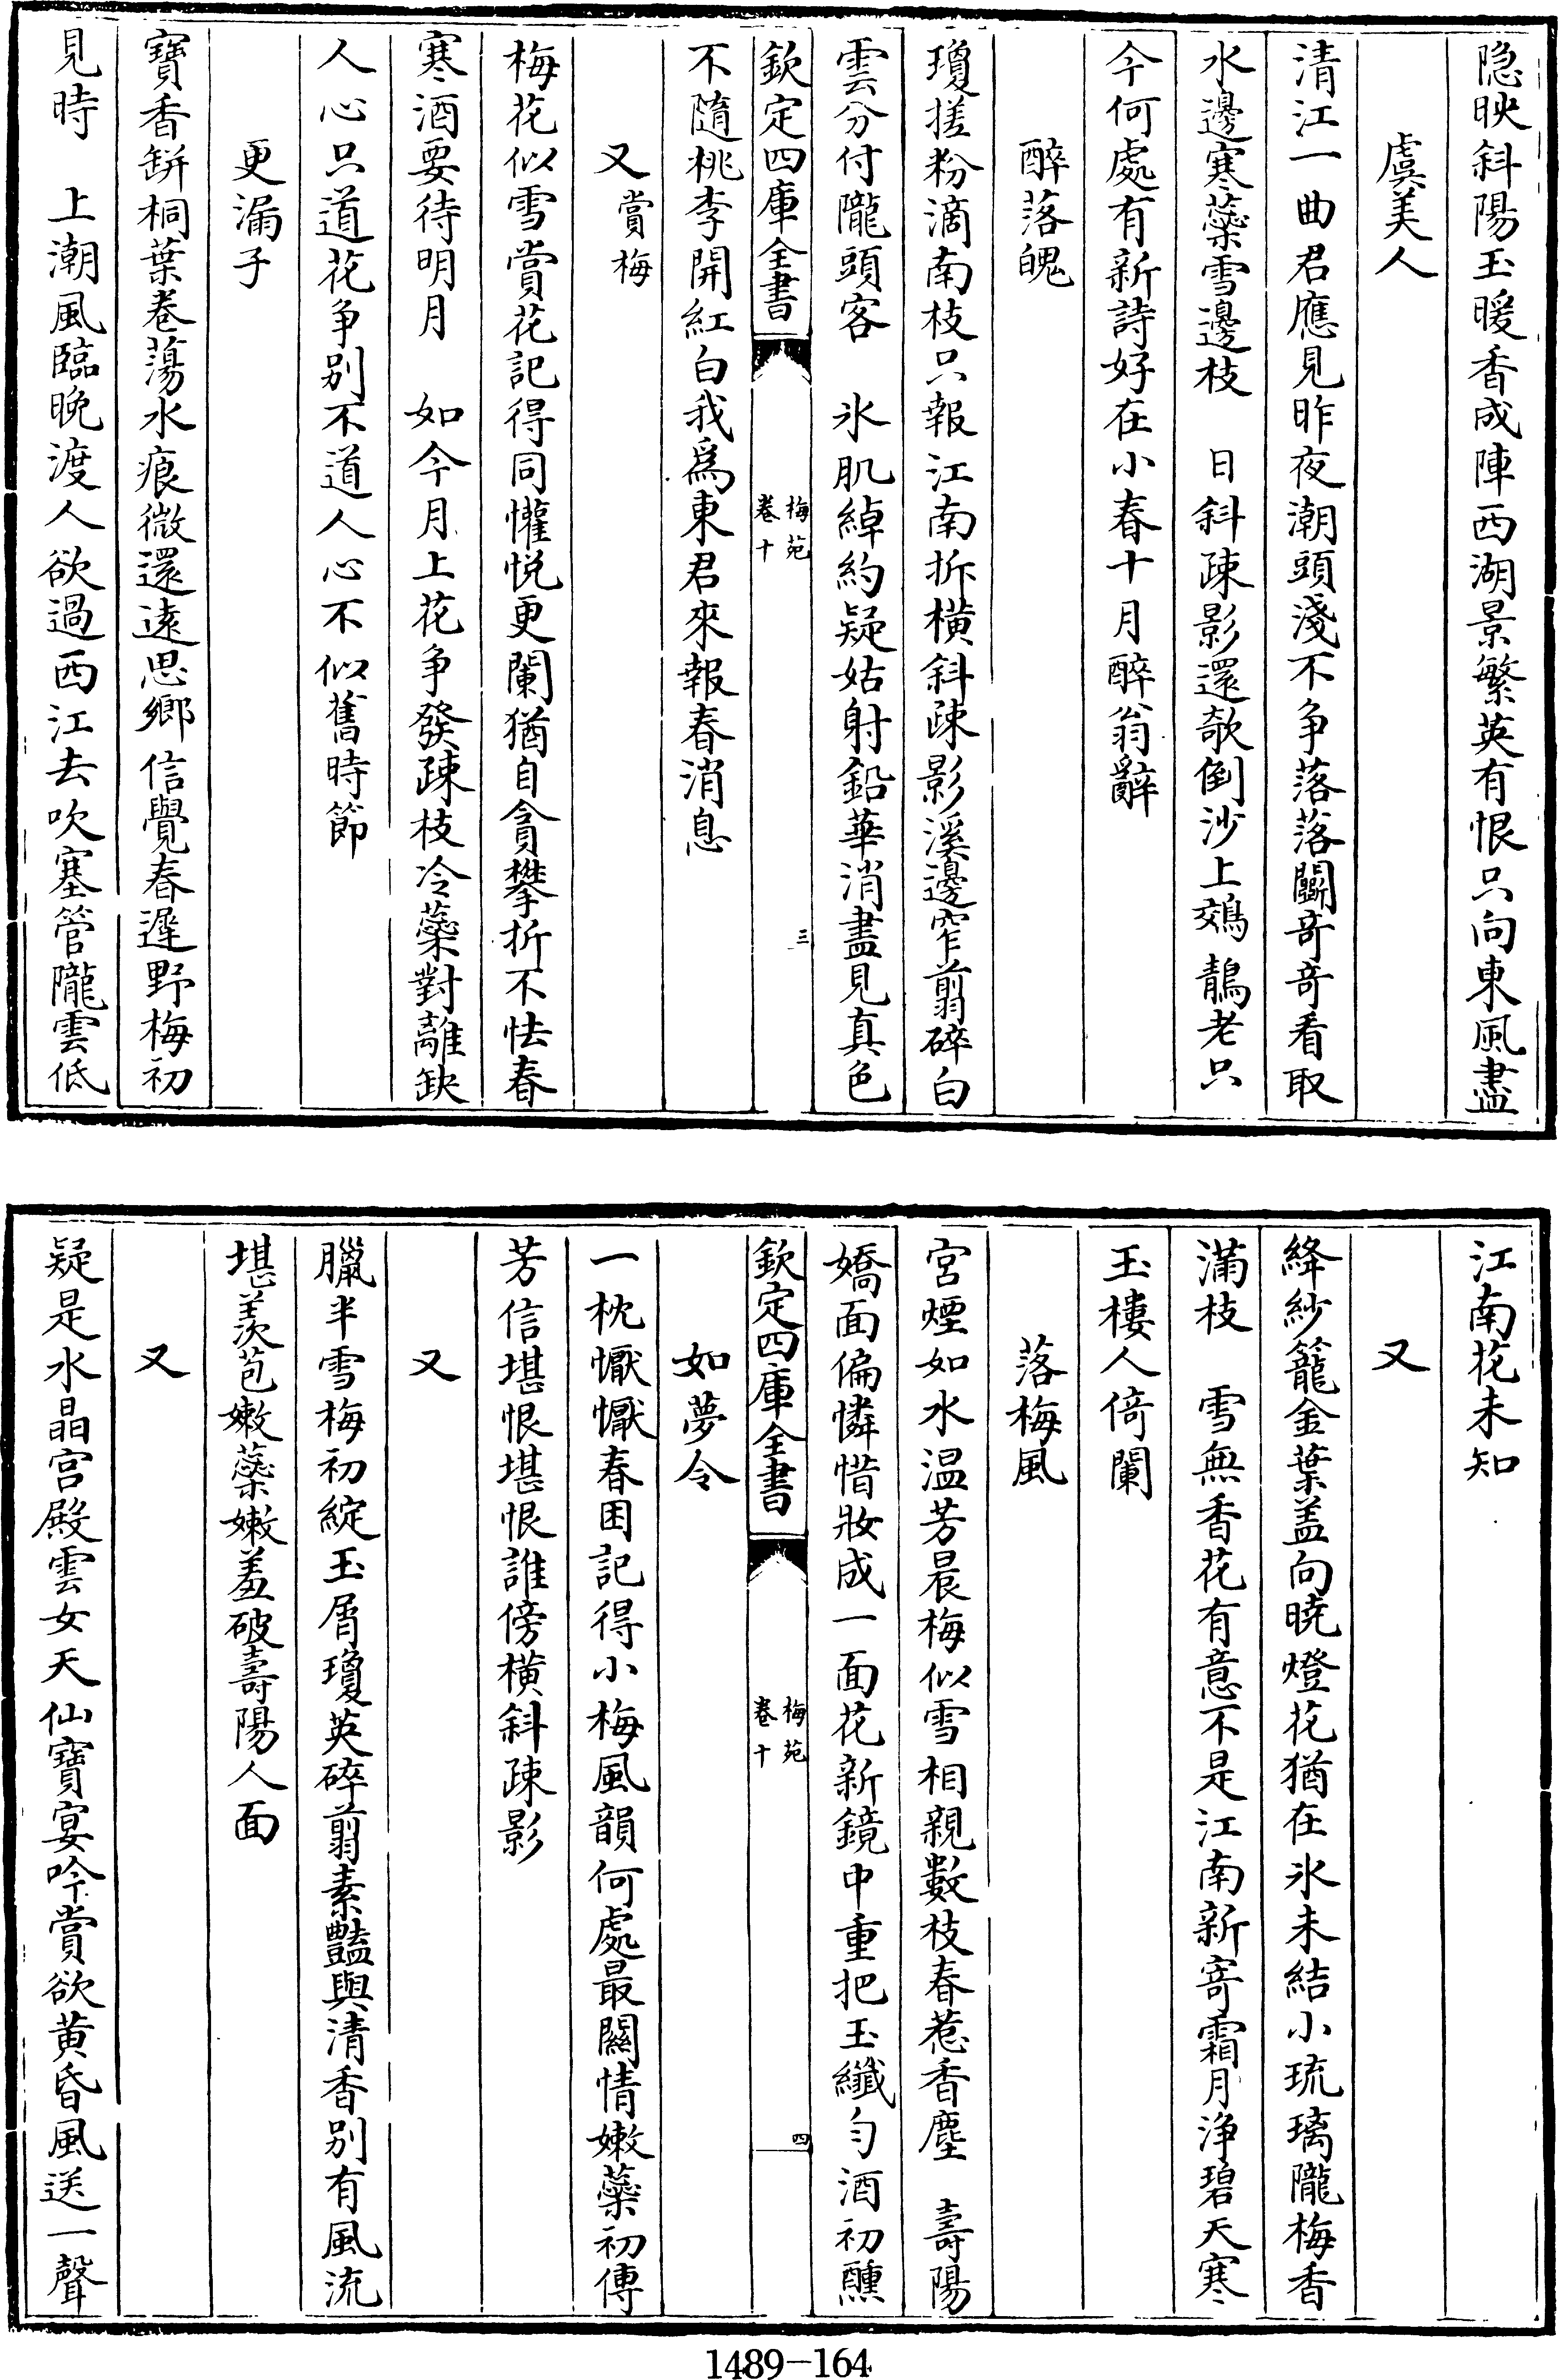 隐映斜陽玉暖香成陣西湖景繁英有恨只向東風盡
虞美人
清江一曲君應見昨夜潮頭淺不争落落關竒竒看取
水邊寒蘂雪邊枝　日斜疎影還欹倒沙上䴔鶄老只
今何處有新詩好在小春十月醉翁辭
醉落魄
瓊搓粉滴南枝只報江南拆横斜疎影溪邊窄翦碎白
雲分付隴頭客　氷肌綽約疑姑射鉛華消盡見真色
欽定四庫全書
梅苑
卷十
三
不隨桃李開紅白我爲東君來報春消息
又賞梅
梅花似雪賞花記得同懽悦更闌猶自貪攀折不怯春
寒酒要待明月　如今月上花争發疎枝冷蘂對離缺
人心只道花争别不道人心不似舊時節
更漏子
寶香缾桐葉卷蕩水痕微還逺思鄉信覺春遲野梅初
見時　上潮風臨晚渡人欲過西江去吹塞管隴雲低
江南花未知
又
絳紗籠金葉盖向曉燈花猶在氷未結小琉璃隴梅香
滿枝　雪無香花有意不是江南新寄霜月浄碧天寒
玉樓人倚闌
落梅風
宫煙如水温芳晨梅似雪相親數枝春惹香塵　壽陽
嬌面偏憐惜妝成一面花新鏡中重把玉纖勻酒初醺
欽定四庫全書
梅苑
卷十
四
如夢令
一枕懨懨春困記得小梅風韻何處最關情嫩蘂初傳
芳信堪恨堪恨誰傍横斜疎影
又
臘半雪梅初綻玉屑瓊英碎翦素豔與清香别有風流
堪羨苞嫩蘂嫩羞破壽陽人面
又
疑是水晶宫殿雲女天仙寶宴吟賞欲黄昏風送一聲
1489-164